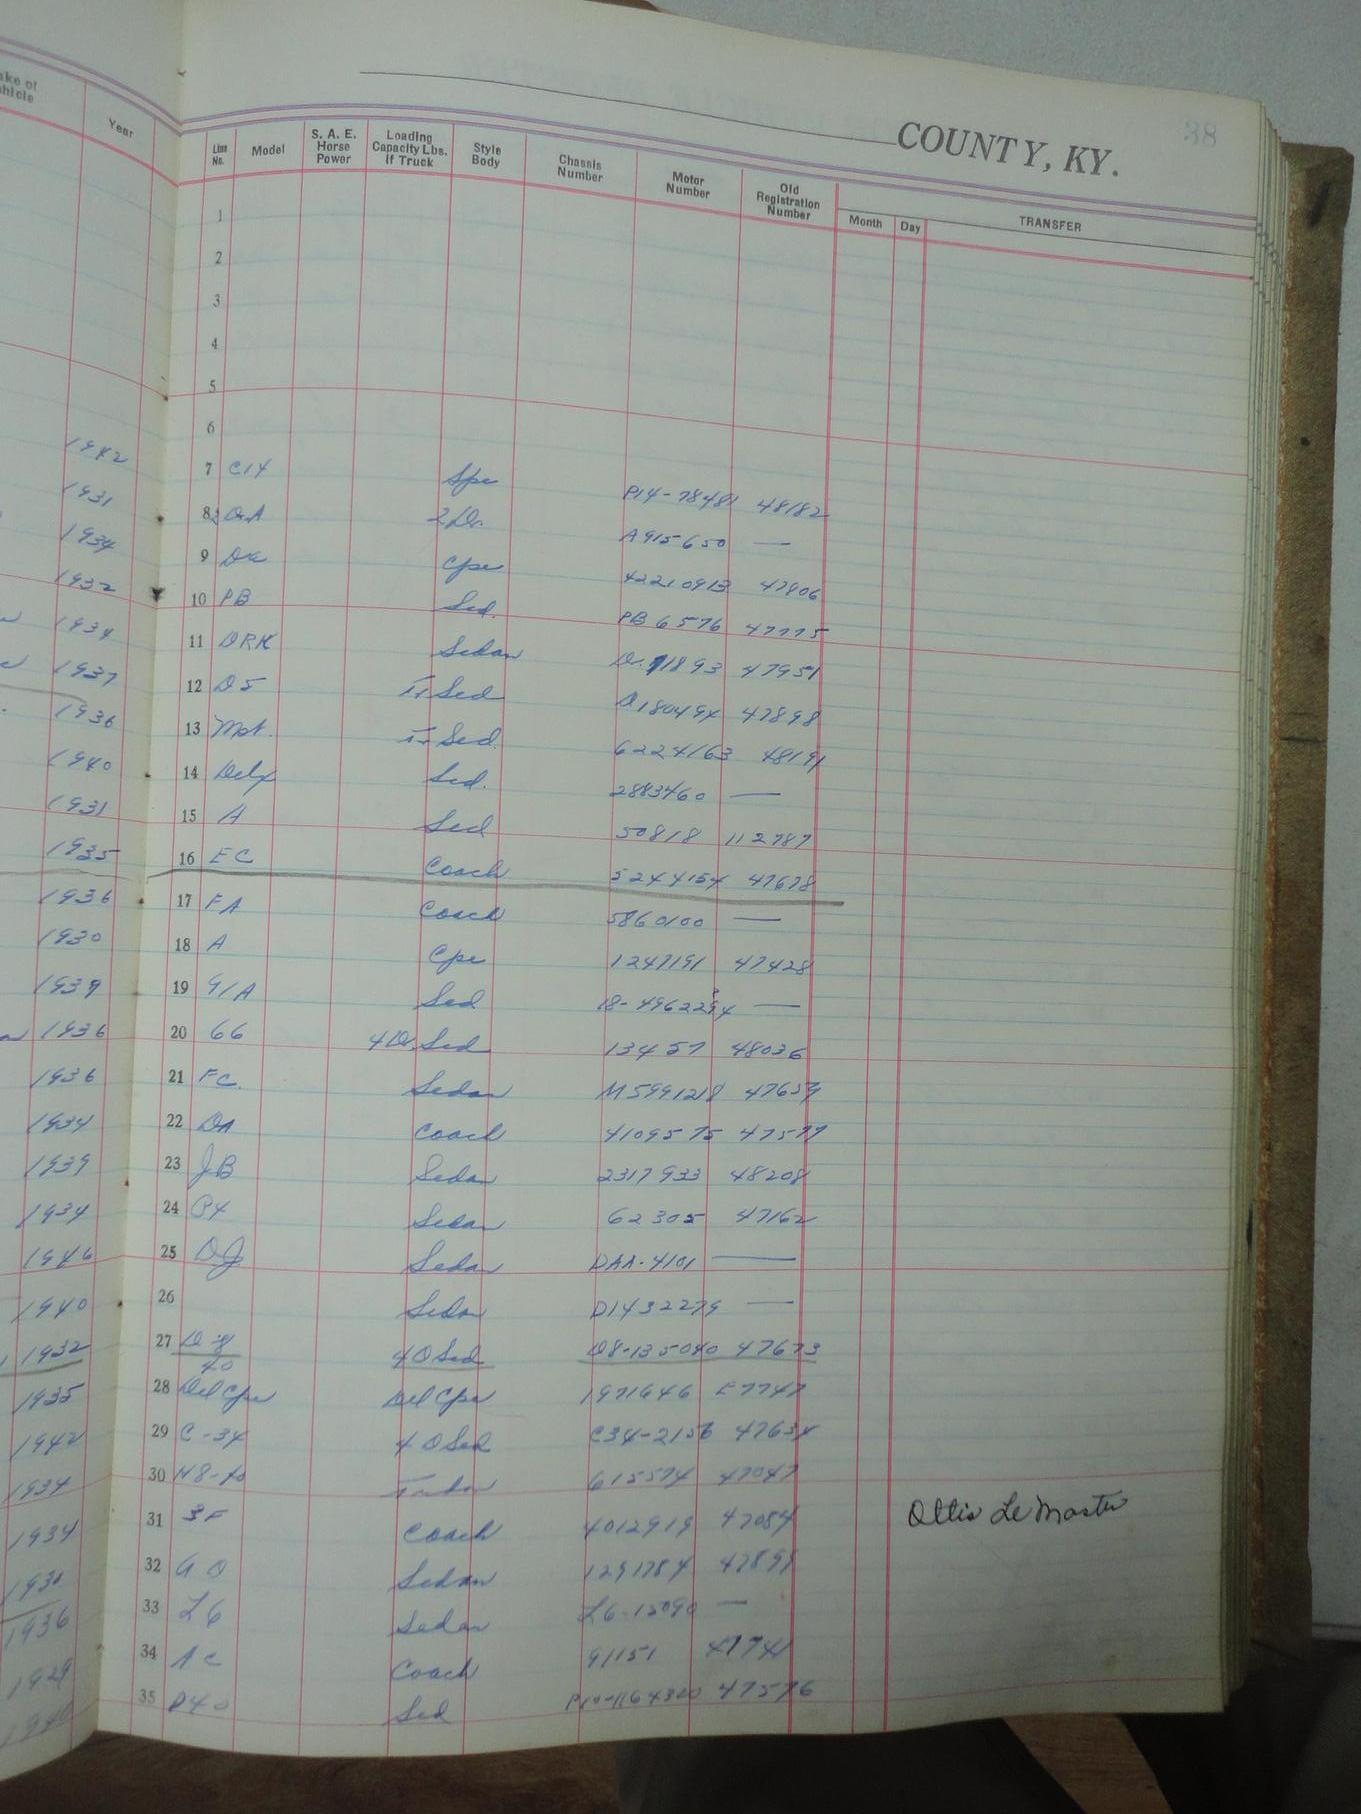 COUNTY, KY. 38
ake of hicle Year Line No. Model S. A. E. Horse Power Loading Capacity Lbs. if Truck Style Body Chassis Number Motor Number Old Registration Number Month Day TRANSFER
1
2
3
4
5
6
1942 7 C14 Spc P14-78481 48182
1931 8 2 Dr. A 2 Dr. A915650 —
1934 9 Dx Cpe 42210913 47806
1932 10 PB Sed. PB 6576 47775
1934 11 DRK Sedan Dr. 11893 47951
1937 12 D5 Tr Sed D180494 47898
1936 13 Mst. Tr Sed. 6224163 48191
1940 14 Delx Sed. 2883460 —
1931 15 A Sed 50818 112787
1935 16 EC Coach 5244154 47678
1936 17 FA Coach 5860100 —
1930 18 A Cpe 1247191 47428
1939 19 91A Sed 18-4962294 —
1936 20 66 4 Dr. Sed 13457 48036
1936 21 FC. Sedan M5991218 47659
1934 22 DA Coach 4109575 47577
1939 23 JB Sedan 2317933 48208
1934 24 P4 Sedan 62305 47162
1946 25 DJ Sedan DAA-4101 —
1940 26 Sedan D1432279 —
1932 27 D-8 4 D Sed D8-135040 47673
40
1935 28 Del Cpe Del Cpe 1971646 E7747
1942 29 C-34 4 D Sed C34-2156 47634
1934 30 N8-40 Tudor 615574 47047
1934 31 3F Coach 4012919 47084 Ottis LeMaster
32 Sedan 1291784 47899
1936 33 L6 Sedan L6-15090 —
1929 34 AC Coach 91151 47741
1940 35 P40 Sed P10-1164320 47576